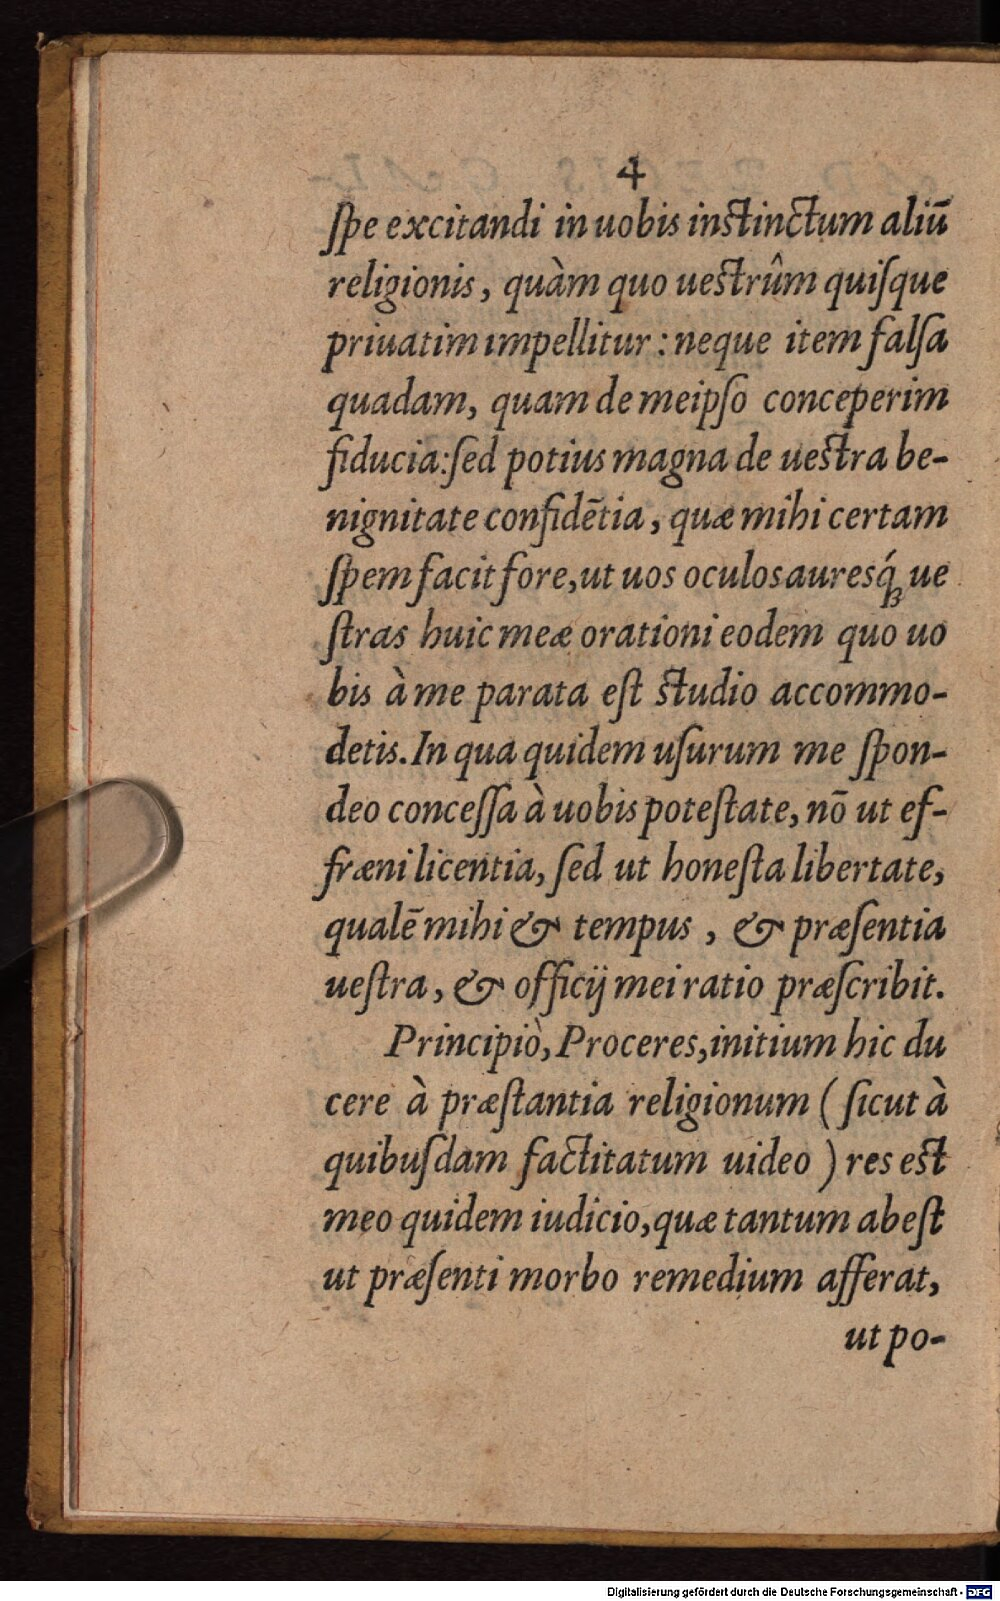 4
ſpe excitandi in uobis inſtinctum aliū
religionis, quàm quo ueſtrûm quiſque
priuatim impellitur: neque item falſa
quadam, quam de meipſo conceperim
fiducia: ſed potius magna de ueſtra be-
nignitate confidētia, quæ mihi certam
ſpem facit fore, ut uos oculos aureſq́ꝫ ue
ſtras huic meæ orationi eodem quo uo
bis à me parata eſt ſtudio accommo-
detis. In qua quidem uſurum me ſpon-
deo conceſſa à uobis poteſtate, nō ut ef-
fræni licentia, ſed ut honeſta libertate,
qualē mihi & tempus, & præſentia
ueſtra, & officij mei ratio præſcribit.
Principiò, Proceres, initium hic du
cere à præſtantia religionum (ſicut à
quibuſdam factitatum uideo) res eſt
meo quidem iudicio, quæ tantum abeſt
ut præſenti morbo remedium afferat,
ut po-
Digitalisierung gefördert durch die Deutsche Forschungsgemeinschaft - DFG